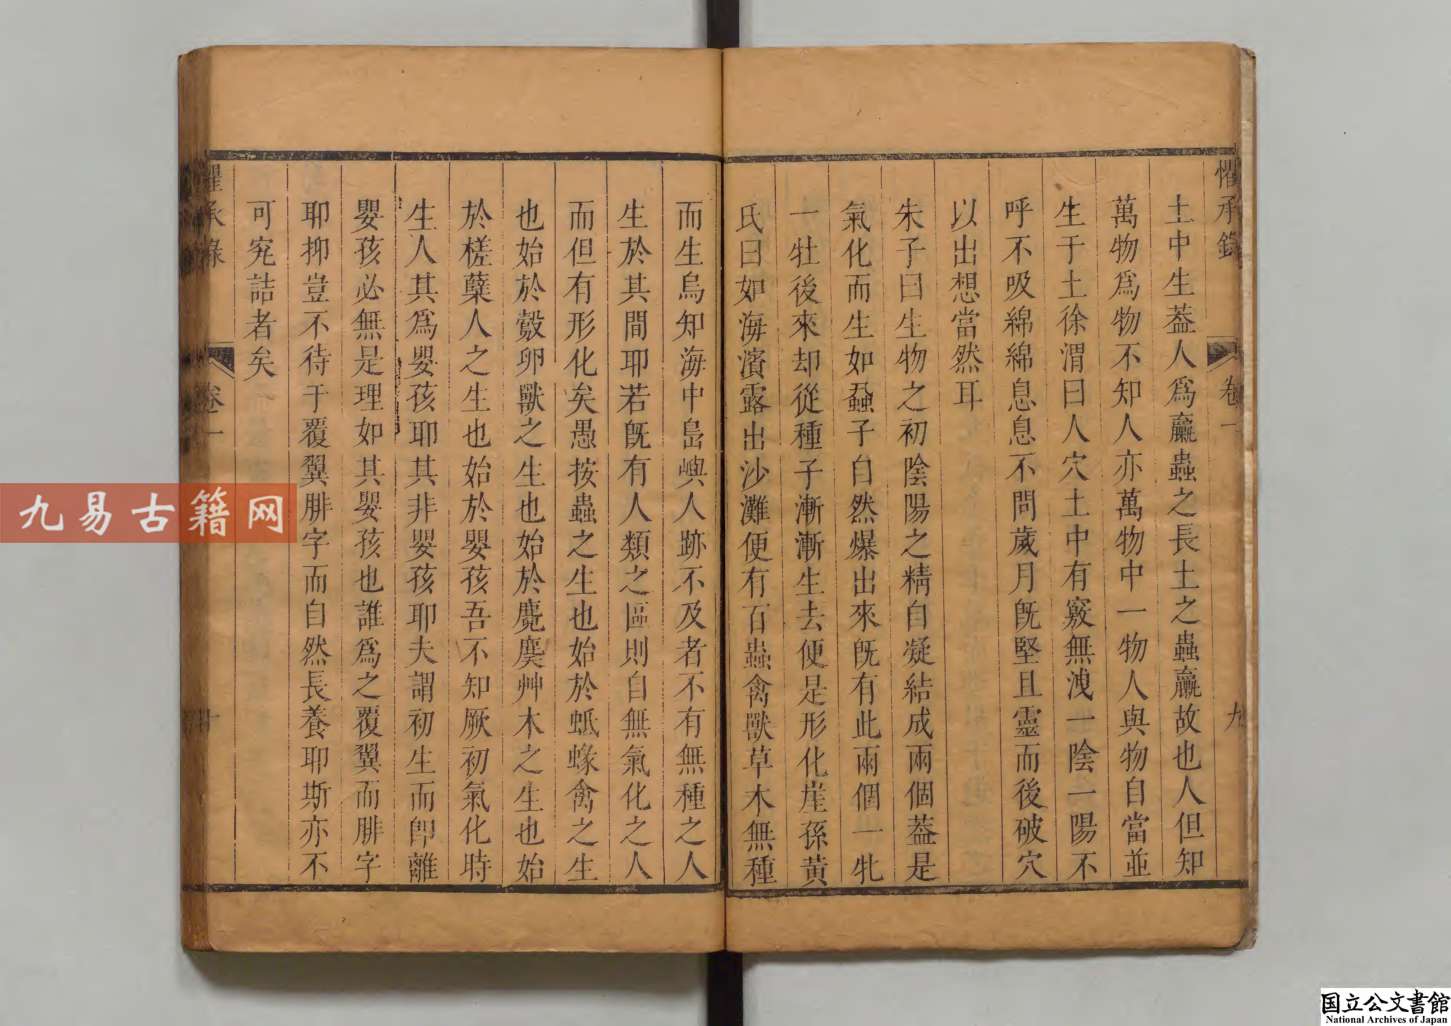 懼承錄 卷一 九
土中生蓋人爲臝蟲之長土之蟲臝故也人但知
萬物爲物不知人亦萬物中一物人與物自當並
生于土徐渭曰人穴土中有竅無洩一陰一陽不
呼不吸綿綿息息不問歲月旣堅且靈而後破穴
以出想當然耳
朱子曰生物之初陰陽之精自凝結成兩個蓋是
氣化而生如蝨子自然爆出來旣有此兩個一牝
一牡後來却從種子漸漸生去便是形化崖孫黃
氏曰如海濱露出沙灘便有百蟲禽獸草木無種
而生烏知海中島嶼人跡不及者不有無種之人
生於其間耶若旣有人類之區則自無氣化之人
而但有形化矣愚按蟲之生也始於蚳蝝禽之生
也始於鷇卵獸之生也始於麑麌艸木之生也始
於槎蘖人之生也始於嬰孩吾不知厥初氣化時
生人其爲嬰孩耶其非嬰孩耶夫謂初生而卽離
嬰孩必無是理如其嬰孩也誰爲之覆翼而腓字
耶抑豈不待于覆翼腓字而自然長養耶斯亦不
可究詰者矣
懼承錄 卷一 十
九易古籍网
国立公文書館
National Archives of Japan